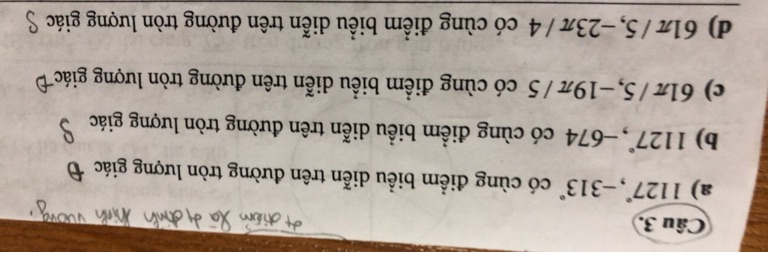 Câu 3.
4 điểm là 4 đỉnh hình vuông.
a) 1127°, −313° có cùng điểm biểu diễn trên đường tròn lượng giác Đ
b) 1127°, −674 có cùng điểm biểu diễn trên đường tròn lượng giác S
c) 61π / 5, −19π / 5 có cùng điểm biểu diễn trên đường tròn lượng giác Đ
d) 61π / 5, −23π / 4 có cùng điểm biểu diễn trên đường tròn lượng giác S